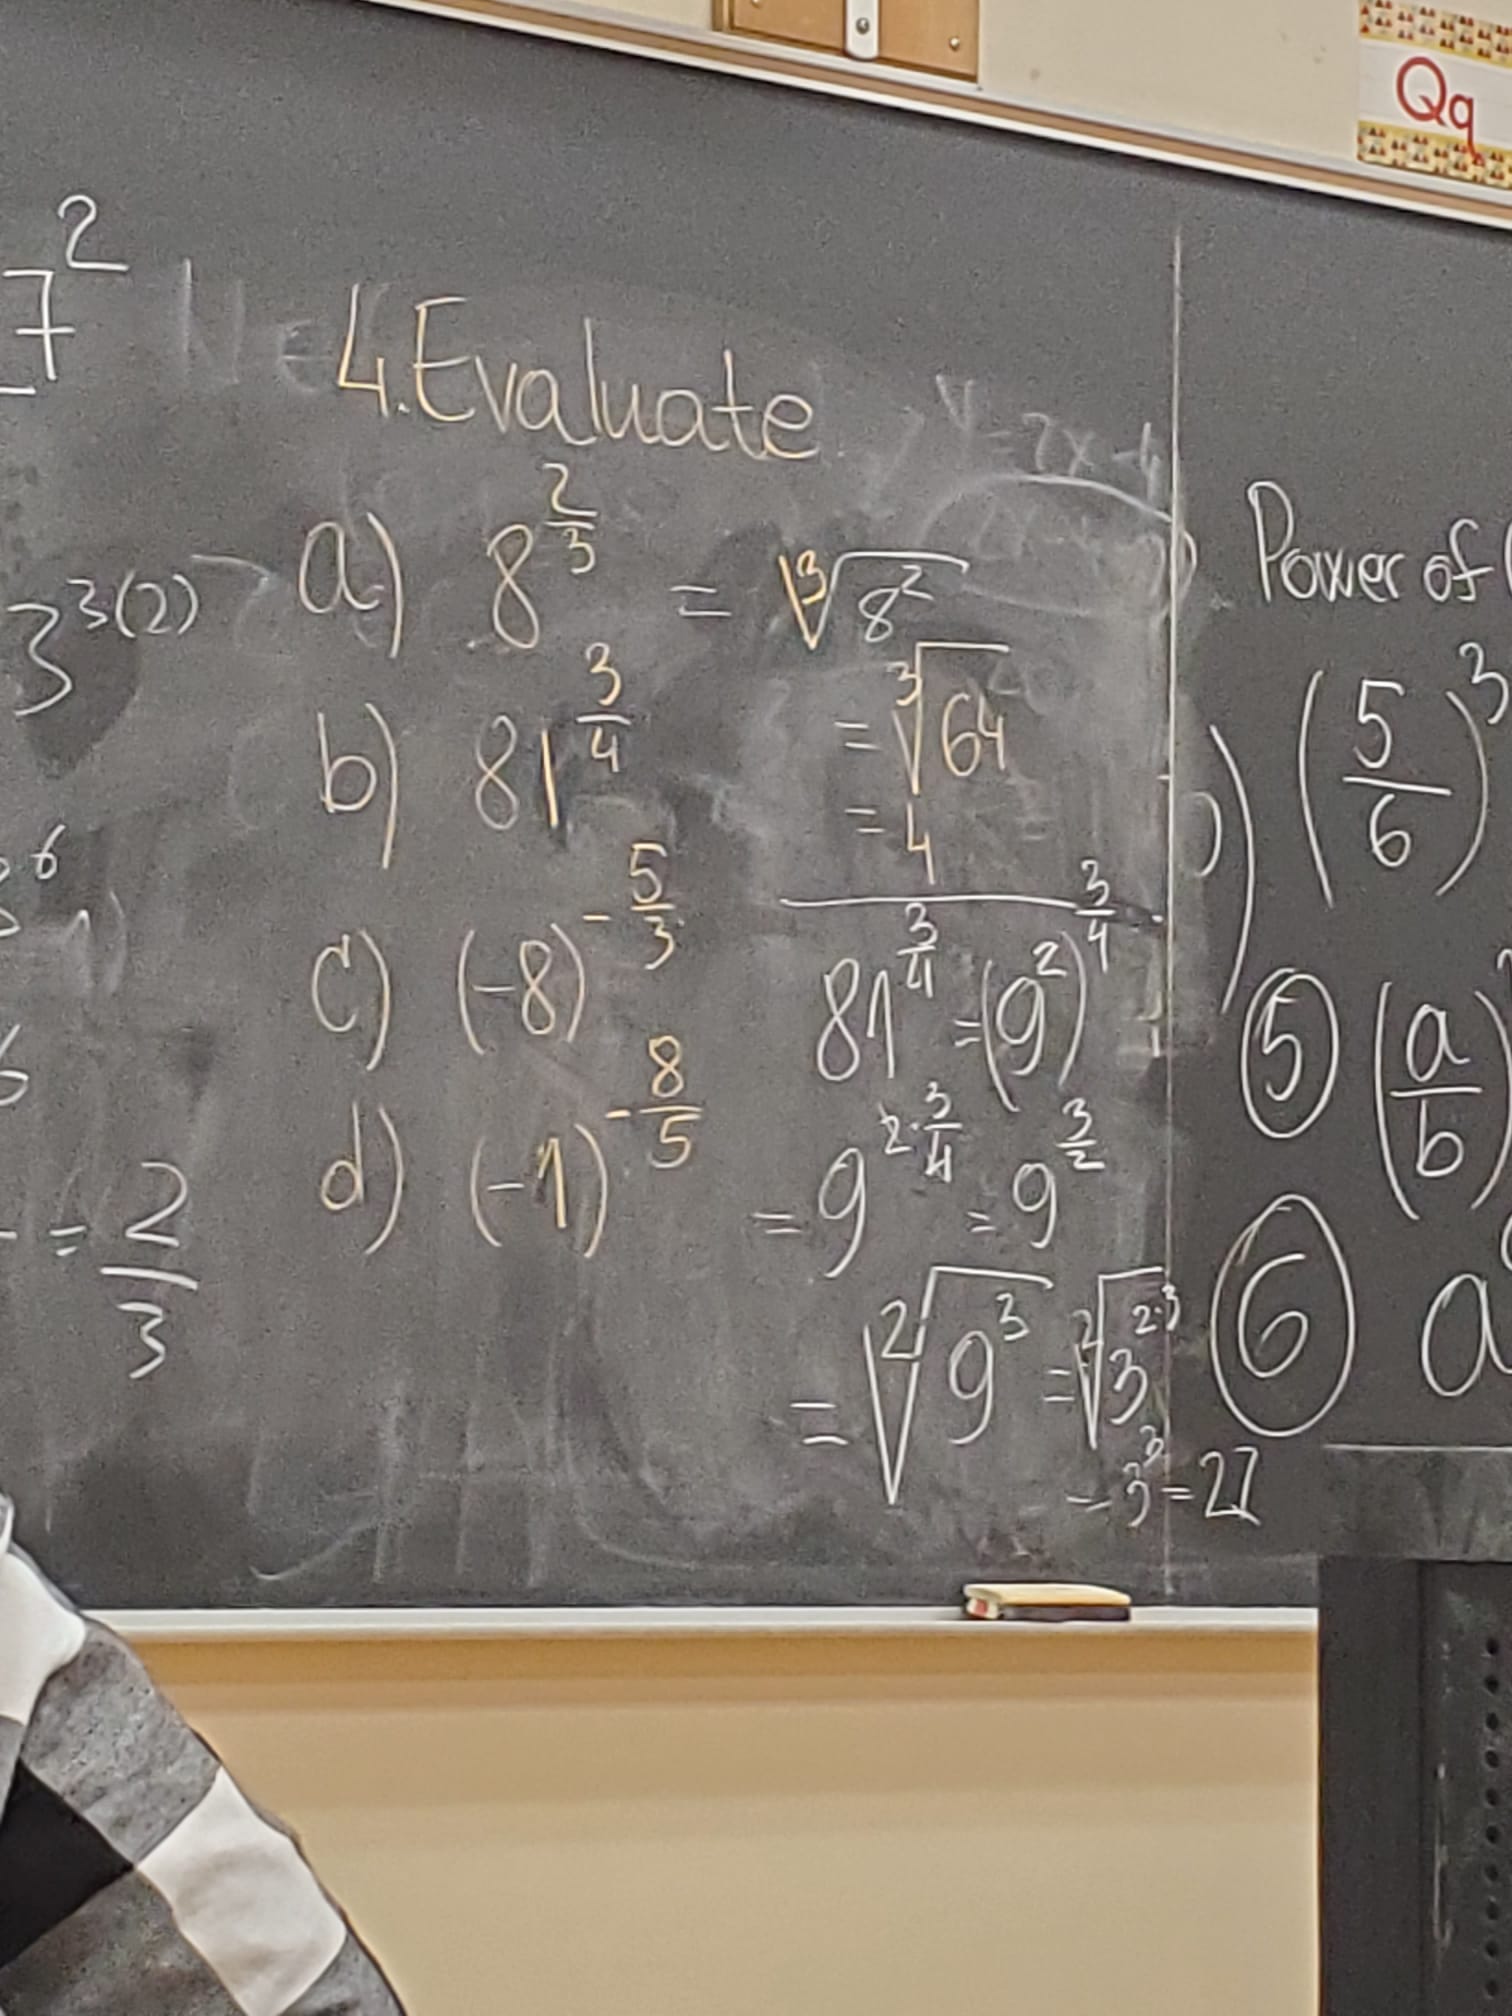 Qq
7²
4. Evaluate
y = 2x - 4
3^3(2)
a) 8^(2/3) = ∛8²
= ∛64
= 4
b) 81^(3/4)
c) (-8)^(-5/3)
d) (-1)^(-8/5)
81^(3/4) = (9²)^(3/4)
= 9^(2·3/4) = 9^(3/2)
= ²√9³ = ²√3^(2·3)
= 3³ = 27
6
= 2/3
Power of
(5/6)³
⑤ (a/b)
⑥ a